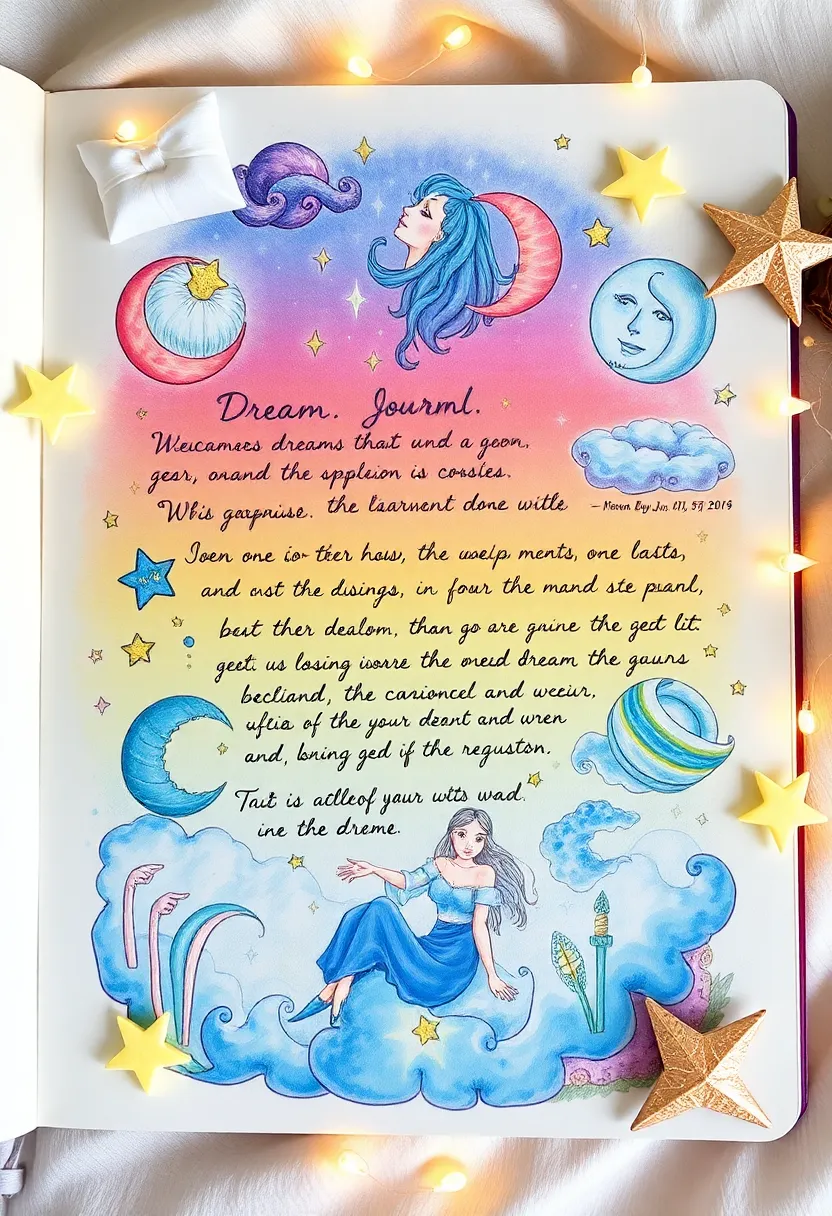 Dream. Jourml.
Weucamses dreams that und a geon,
gesr, onand the spplsion is cosles.
Whis gœpnise. the learnent done witle
2019
Joen one io ther how, the uselp ments, one lasts,
and cust the disings, in four the mand ste pianl,
beat ther dealom, than go are gnine the ged lit.
geet. us losing iosre the oned dream the gauns
becliand, the carioncel and weeur,
uftia of the your deant and wren
and, loning ged if the reguston.
Tait is adleof your wits wad.
ine the dreme.